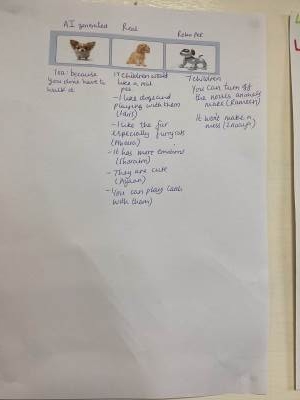 AI generated
Real
Robo Pet
1ea: because
you dont have to
walk it
17 children would
like a real
pet
- I like dogs and
playing with them
(Idris)
- I like the fur
especially furry cats
- It has more emotions
- They are cute
(Ayaan)
- You can play
with them)
7 children
You can turn off
the noises animals
make (Raheem)
It wont make a
mess (